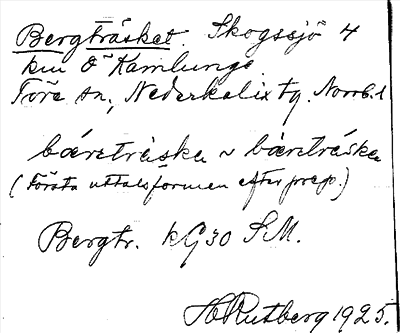 Bergträsket. Skogssjö 4
km Ö Kamlunge.
Töre sn., Nederkalix tg. Norrb. l
bærtráska ~ bærtráska
(första uttalsformen efter prep.)
Bergtr. kG30 SM.
H Rutberg 1925.